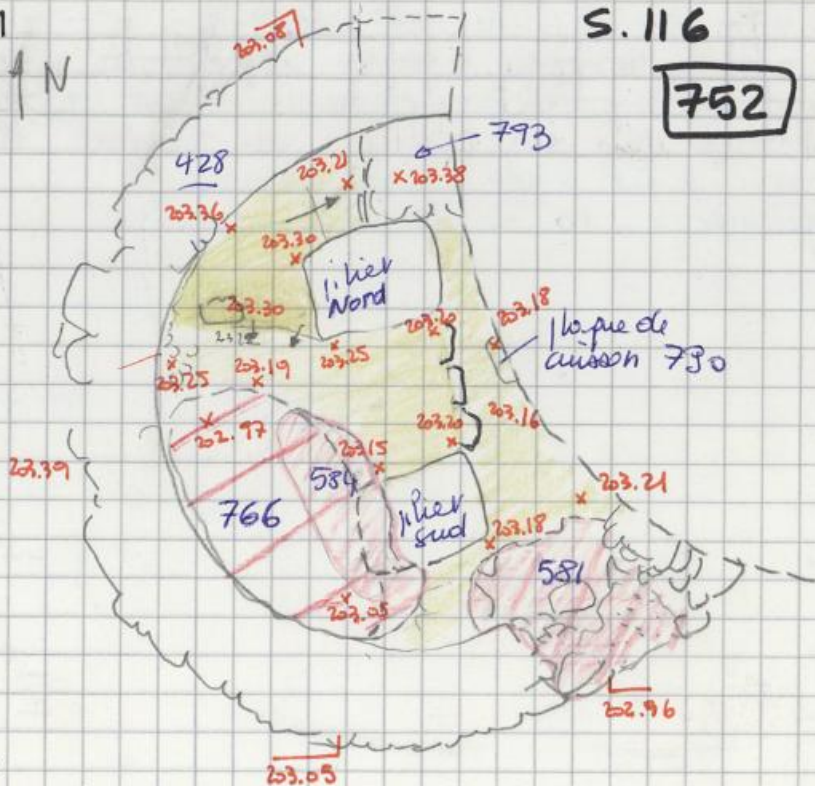 S. 116
203.08
N
752
793
428
203.21
203.38
203.36
203.30
pilier
Nord
203.30
203.20
203.18
plaque de
cuisson 790
203.25
203.19
203.25
202.97
203.20
203.16
203.39
203.15
584
766
pilier
sud
203.21
203.18
581
203.05
202.96
203.05